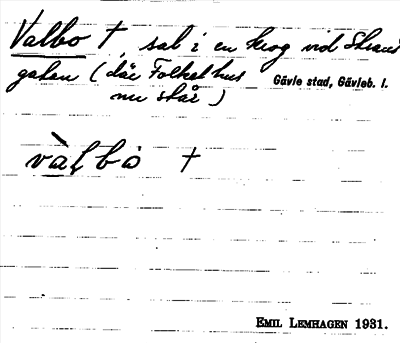 Valbo †, sal i en krog vid Strand
gatan (där Folkets hus
Gävle stad, Gävleb. l.
nu står)
vàlbò †
EMIL LEMHAGEN 1931.